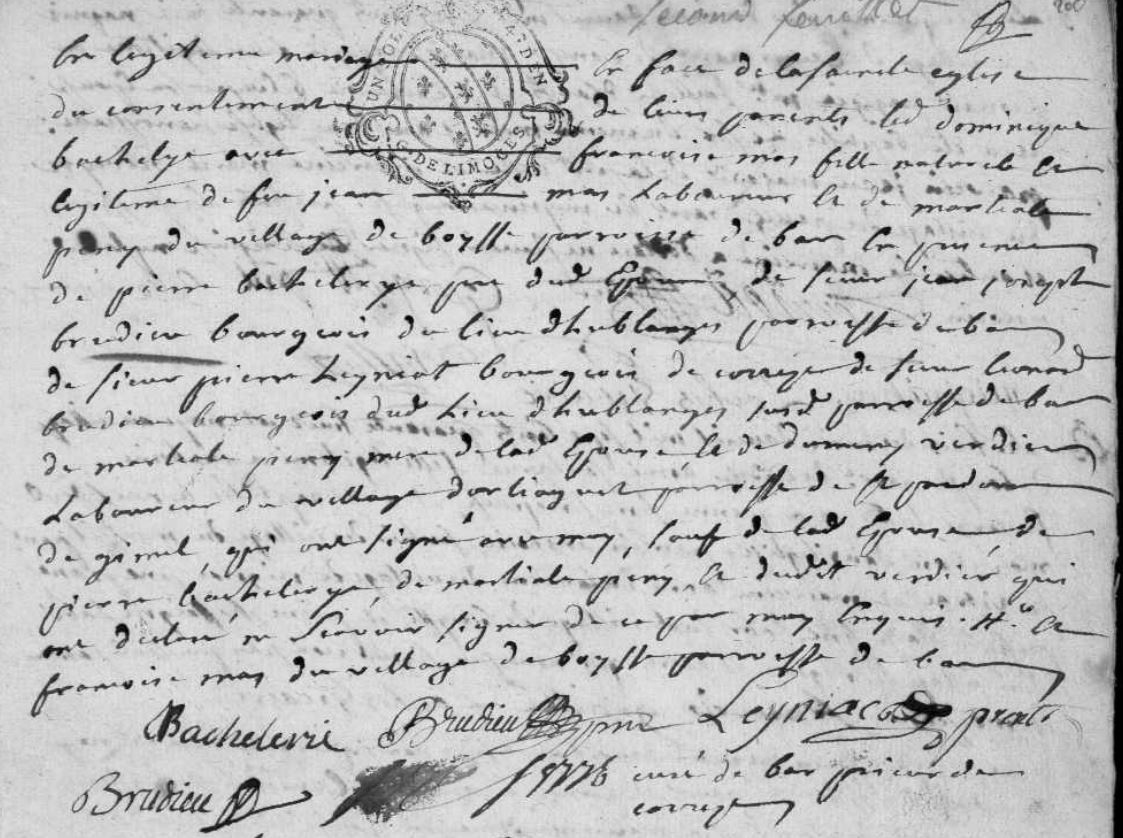 second feuillet
UN SOL 4. DEN
G. DE LIMOGES
en legitime mariage En face de la sainte eglise
du consentement de leurs parents led dominique
bachelerye avec francoise mas fille naturele et
legiteme de feu jean mas Laboureur et de martiale
peny du village de boysse parroisse de bar En presence
de pierre bachelerye pere dud Epoux, de sieur jean joseph
brudieu bourgeois du lieu dhublanges parroisse de bar
de sieur pierre Leyniat bourgeois de correze de sieur leonard
brudieu bourgeois dud Lieu dhublanges susd parroisse de bar
de martiale peny mere de lad Epouse et de dumeny verdier
Laboureur du village dorliaguet parroisse de st pardoux
de gimel, qui ont signé avec moy, sauf de lad Epouse de
pierre bachelerye, de martiale peny, et dudit verdier qui
ont declaré ne scavoir signer de ce par moy Enquis. #. et
francoise mas du village de boysse parroisse de bar
Bachelerie Brudieu pnt Leyniac pret
Brudieu curé de bar prieur de
correze